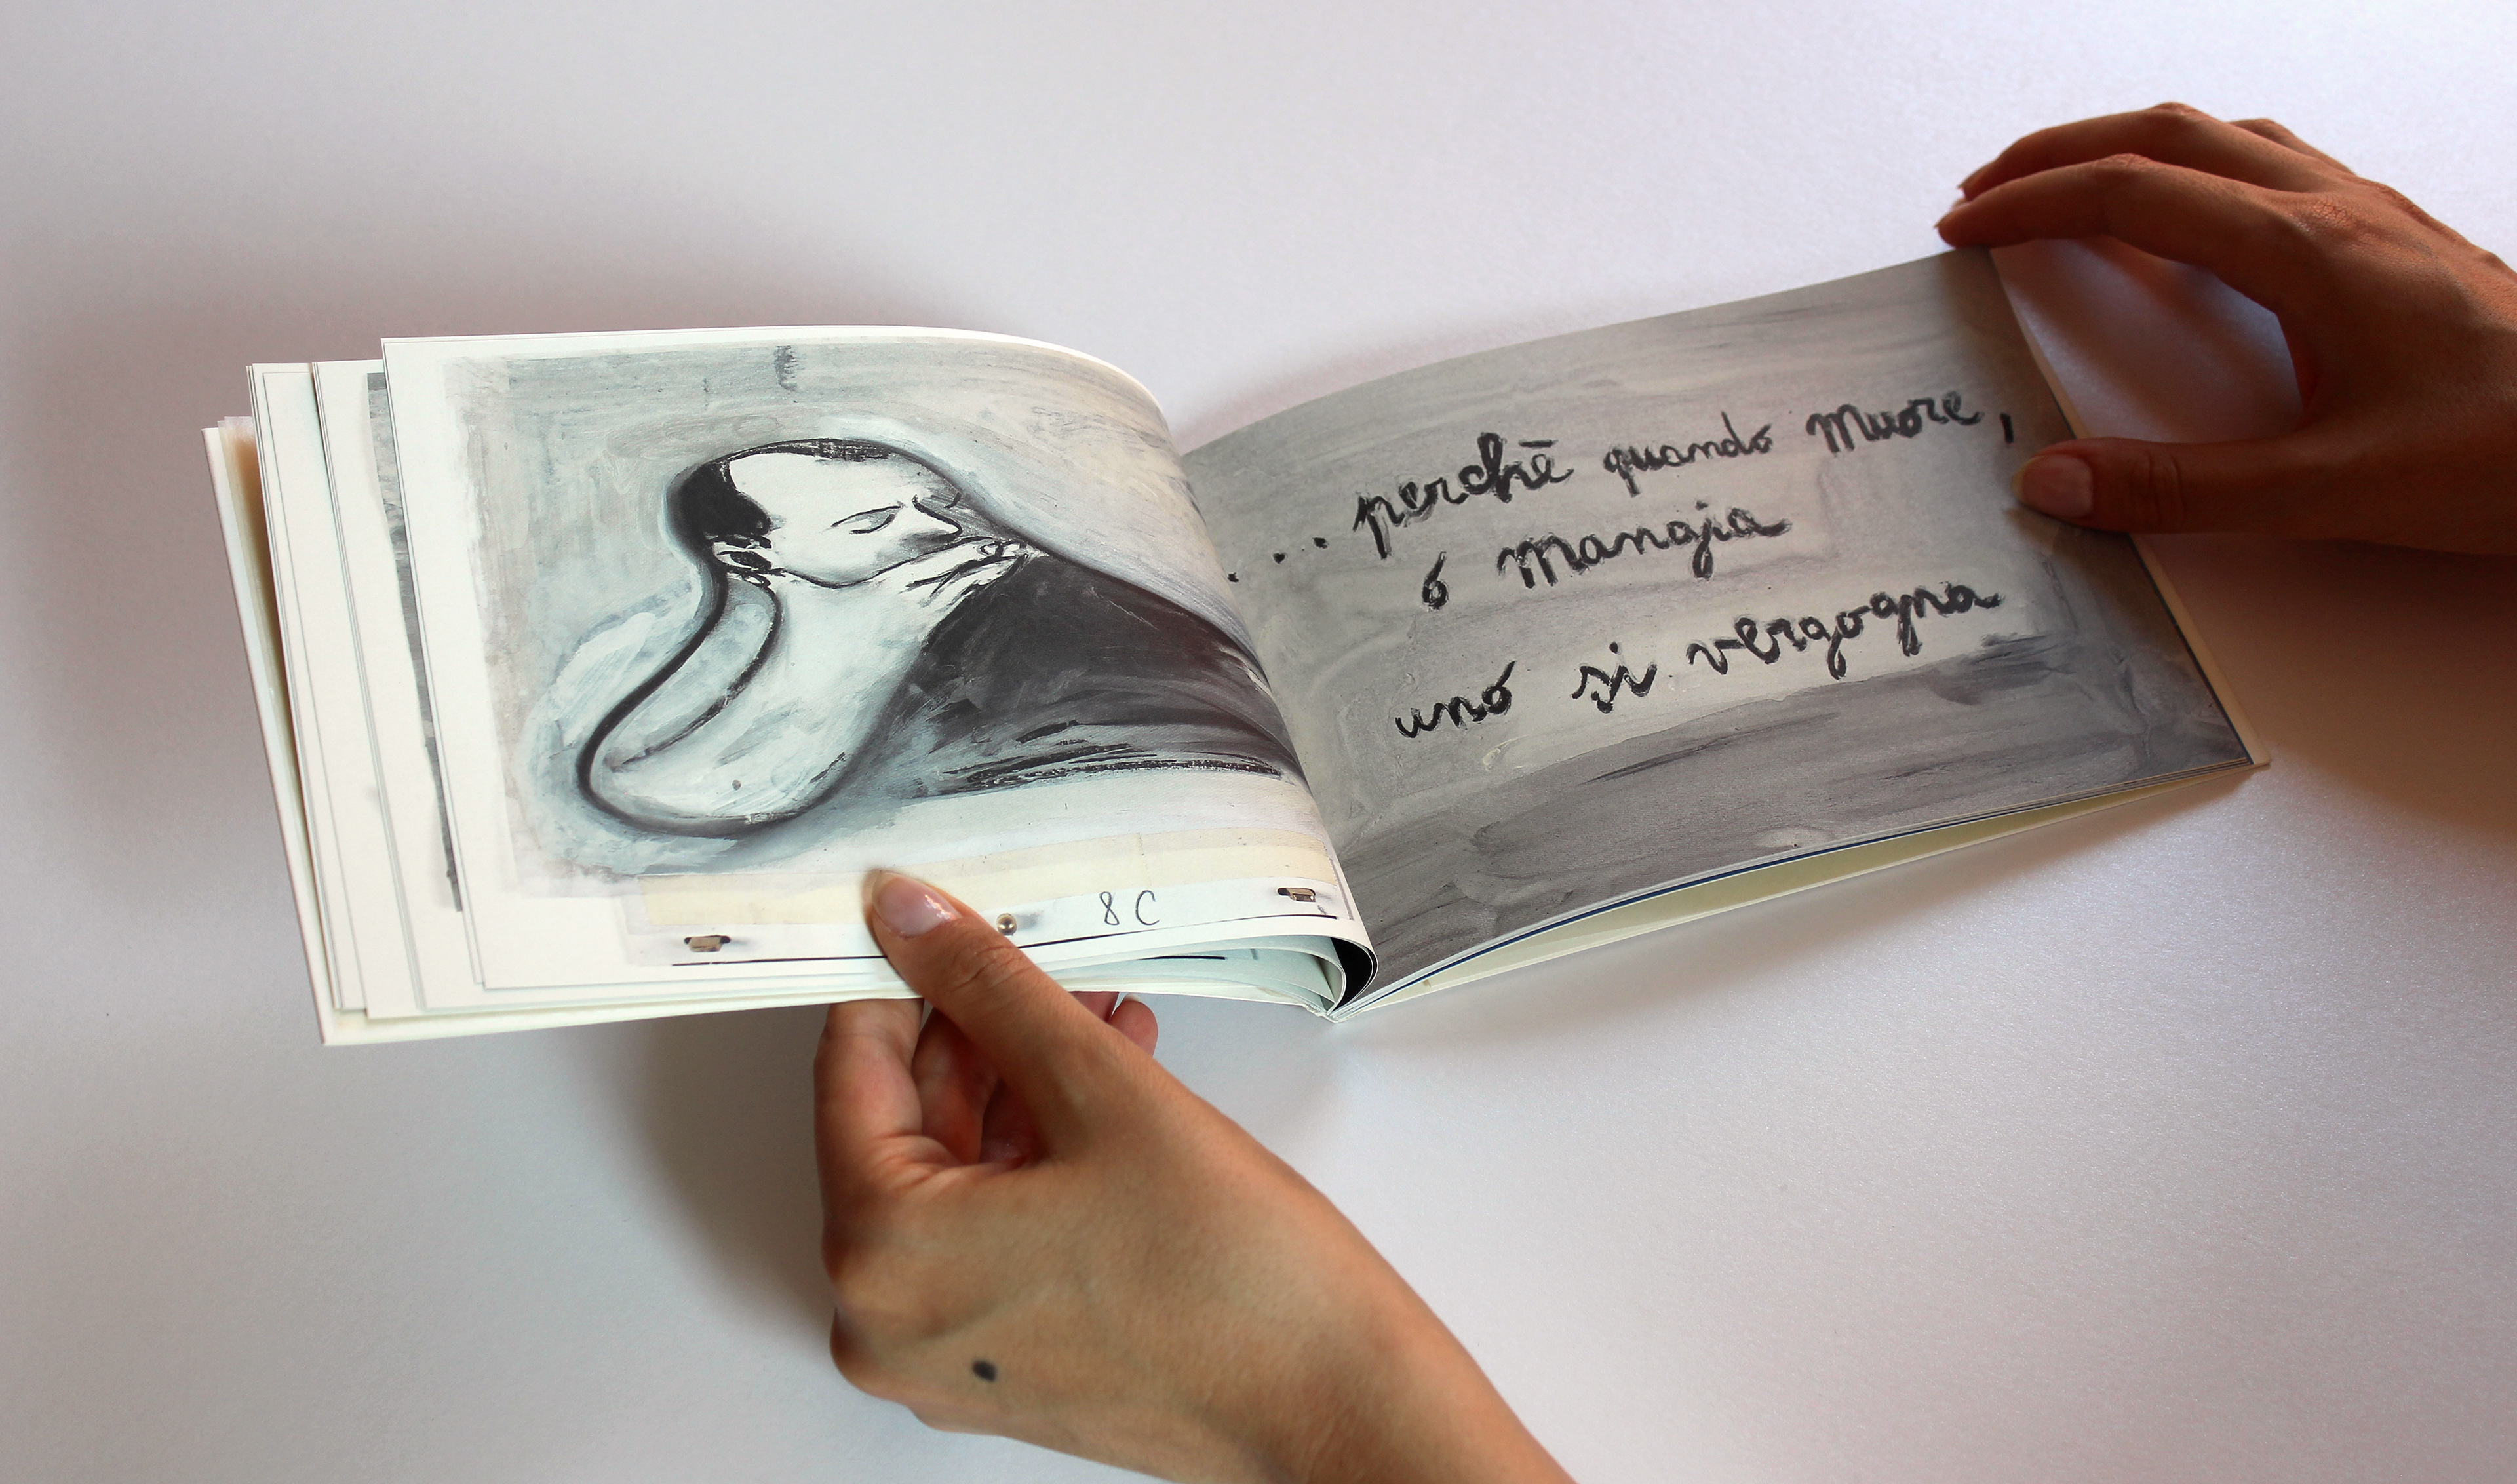 8 C
... perchē quando muore,
o mangia
uno si vergogna